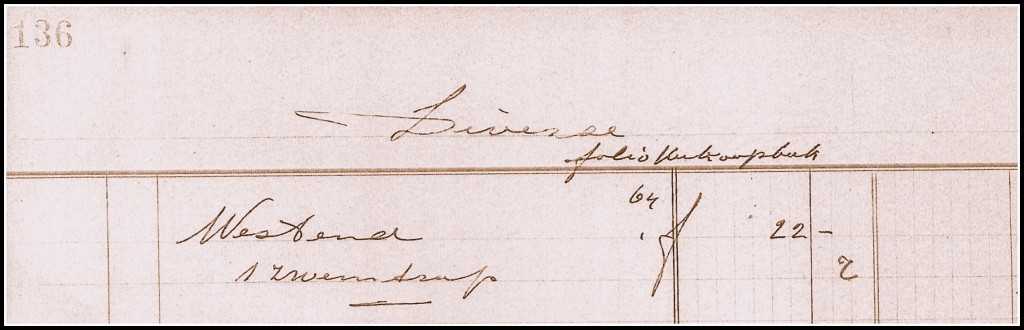 136
Diverse
folio Verkoopboek
64
Westend f 22 -
1 zwemtrap